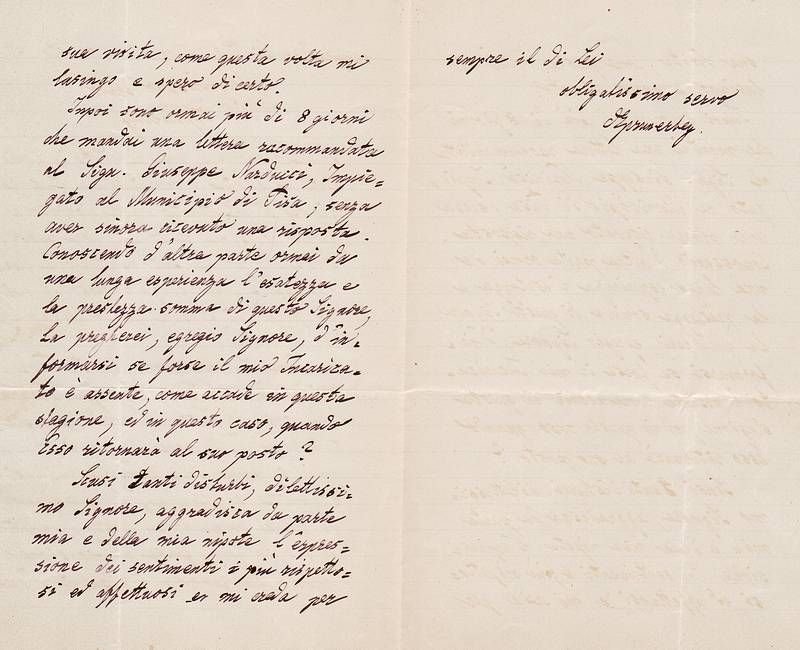 sua visita, come questa volta mi
lusingo e spero di certo.
Inpoi sono ormai più di 8 giorni
che mandai una lettera racommandata
al Sign. Giuseppe Narducci, Impie=
gato al Municipio di Pisa, senza
aver sinora ricevuto una risposta.
Conoscendo d'altra parte ormai da
una lunga esperienza l'esatezza e
la prestezza somma di questo Signore,
La pregherei, egregio Signore, d'in=
formarsi se forse il mio Incarica=
to è assente, come accade in questa
stagione, ed in questo caso, quando
Esso ritornarà al suo posto?
Scusi tanti disturbi, dilettissi=
mo Signore, aggradisca da parte
mia e della mia nipote l'espres=
sione dei sentimenti i più rispetto=
si ed affettuosi e mi creda per
sempre il di Lei
obligatissimo servo